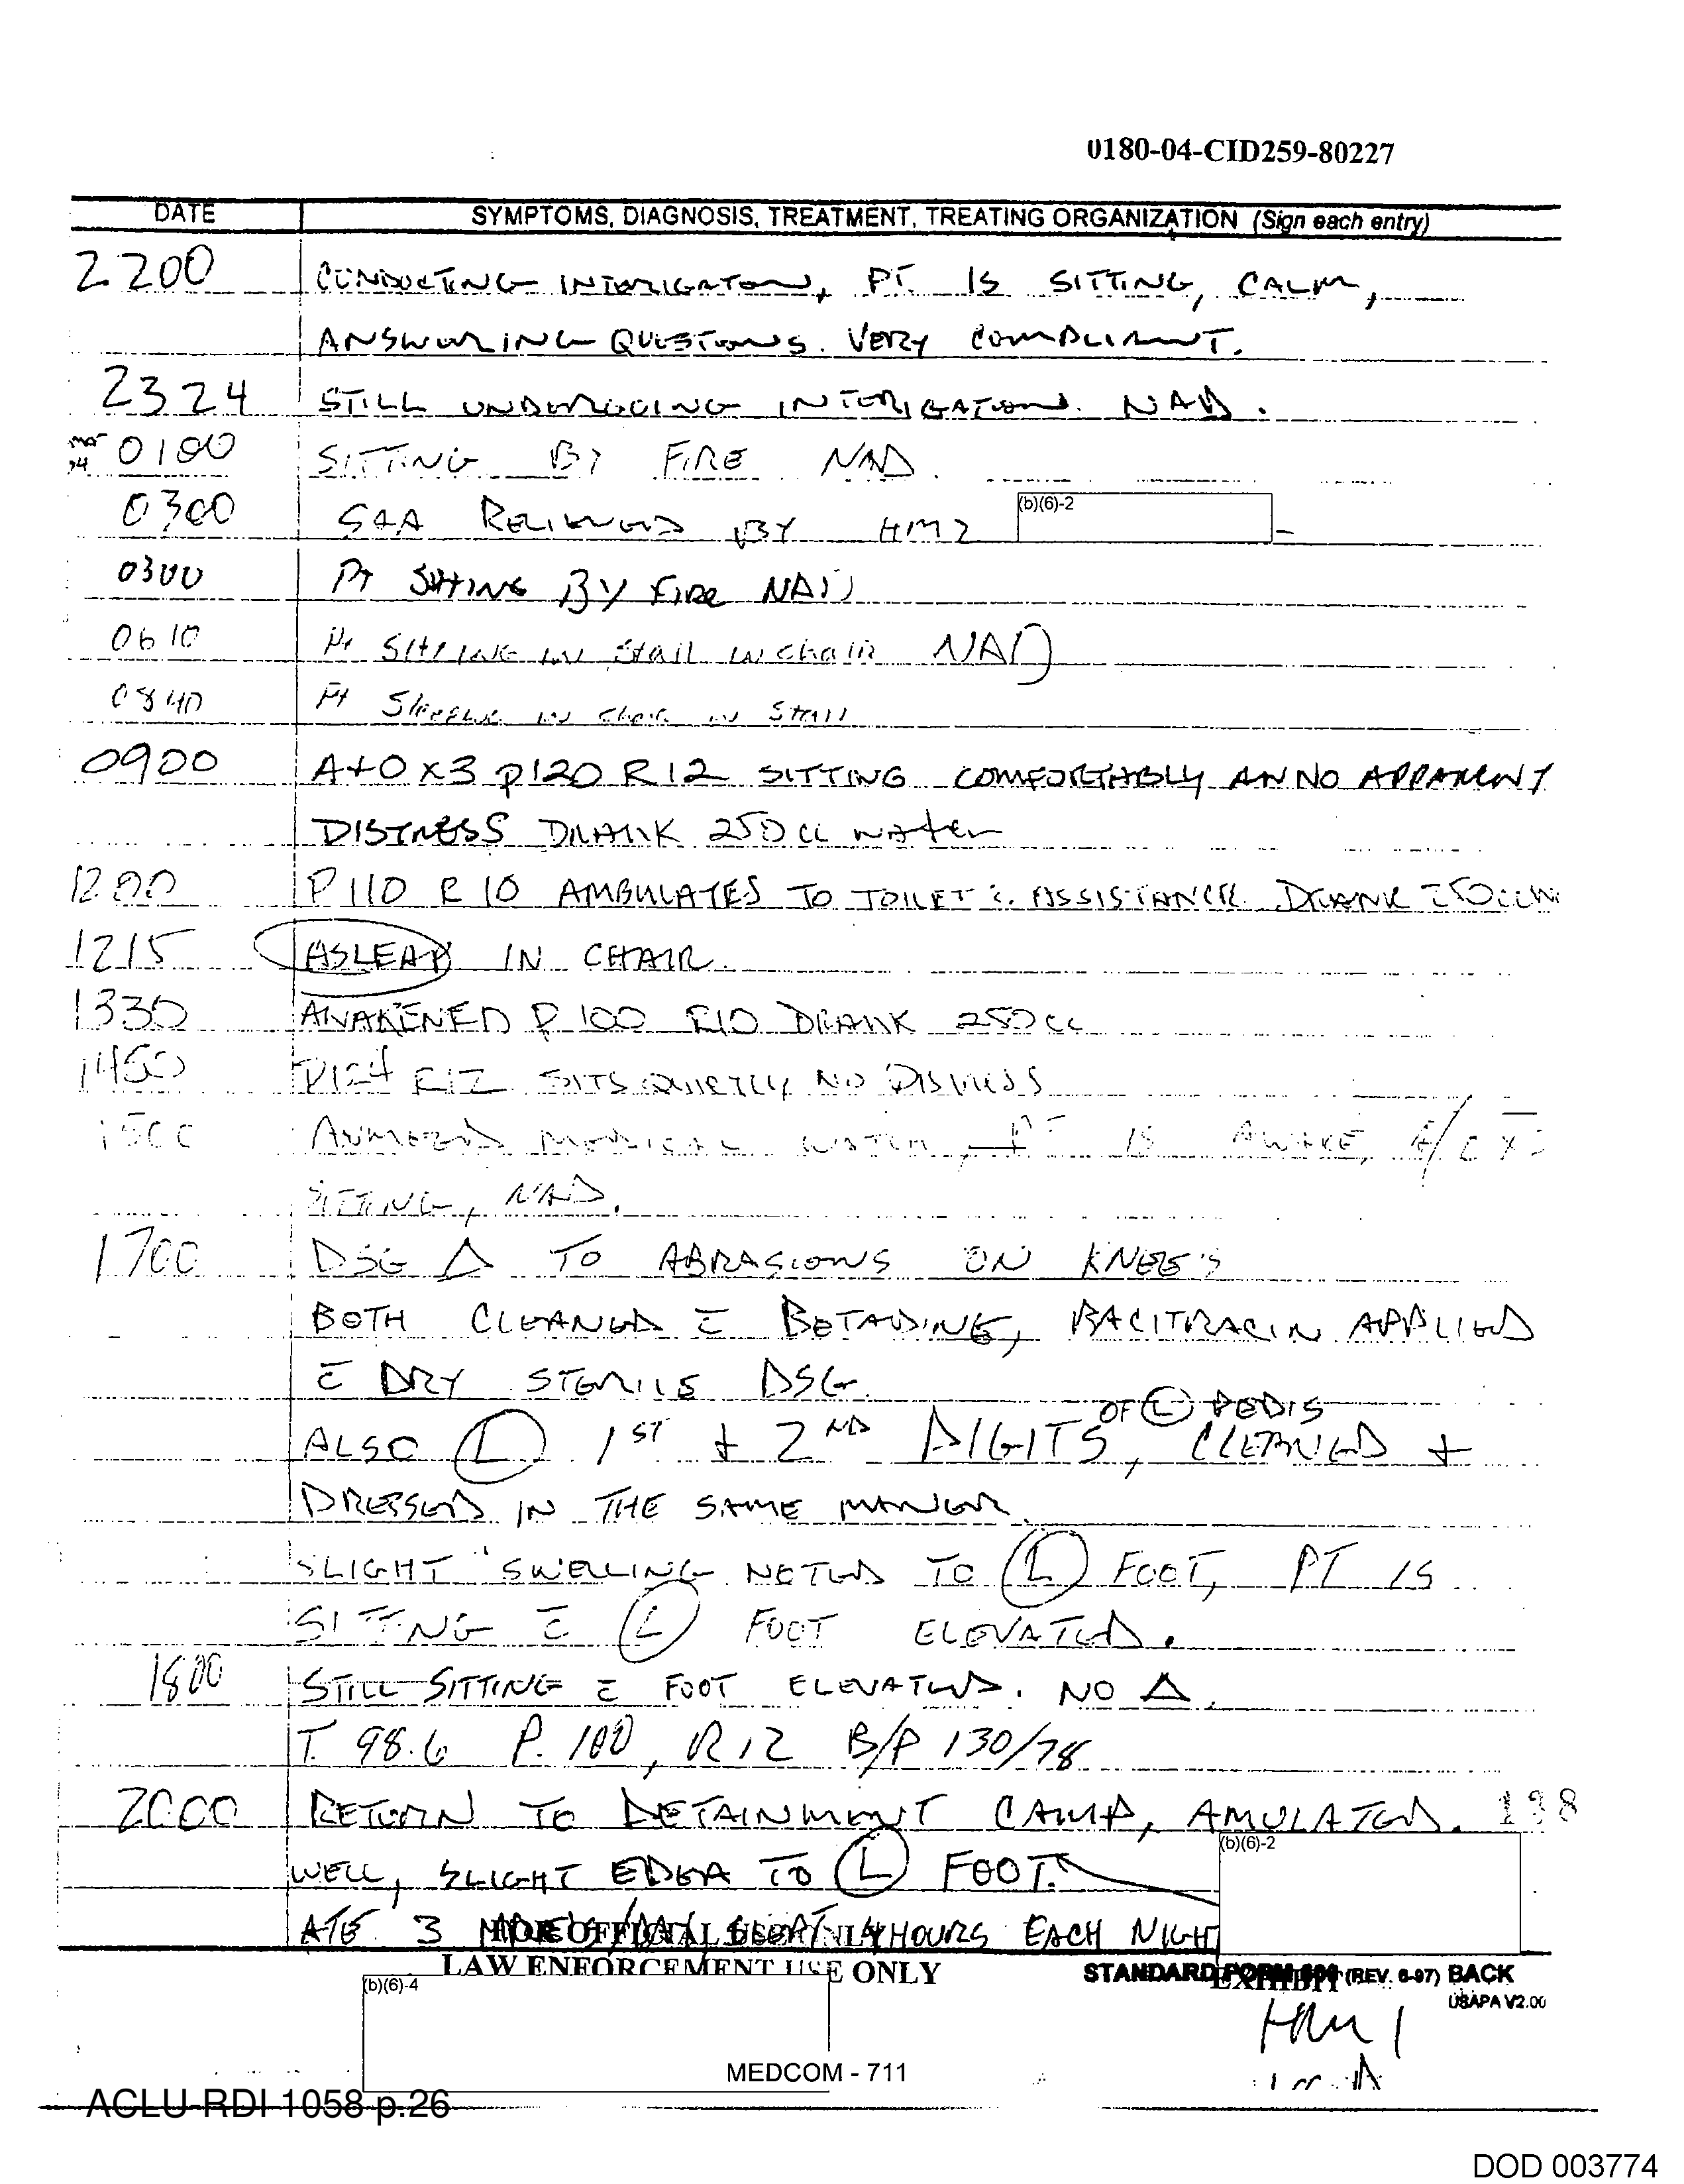 0180-04-CID259-80227
DATE SYMPTOMS, DIAGNOSIS, TREATMENT, TREATING ORGANIZATION (Sign each entry)
2200 CONDUCTING INTERIGATION, PT. IS SITTING, CALM,
ANSWERING QUESTIONS. VERY COMPLIANT.
2324 STILL UNDERGOING INTERIGATION. NAD.
0100 SITTING BY FIRE NAD.
0300 RELIEVED BY HM2 (b)(6)-2
0300 PT SITTING BY FIRE NAD
0610 Pt SITTING IN Stall in chair NAD
0840 Pt Sleeping IN chair IN Stall
0900 A+O X3 P120 R12 SITTING COMFORTHABLY AN NO APPARENT
DISTRESS DRANK 250cc water
1200 P 110 R 10 AMBULATES TO TOILET c̄ ASSISTANCE. DRANK 250cc
1215 ASLEAP IN CHAIR.
1330 AWAKENED P 100 R10 DRANK 250cc
1450 P124 R12 SITS QUIETLY NO DISTRESS
1500 MEDICAL WATCH, PT IS AWAKE,
SITTING, NAD.
1700 DSG Δ TO ABRASIONS ON KNEE'S
BOTH CLEANED c̄ BETADINE, BACITRACIN APPLIED
c̄ DRY STERILE DSG.
ALSO (L) 1ST + 2ND DIGITS, OF (L) PEDIS CLEANED +
DRESSED IN THE SAME MANOR.
SLIGHT SWELLING NOTED TO (L) FOOT, PT IS
SITTING c̄ (L) FOOT ELEVATED.
1800 STILL SITTING c̄ FOOT ELEVATED. NO Δ.
T. 98.6 P. 100, R12 B/P 130/78
2000 RETURN TO DETAINMENT CAMP, AMULATED. 138
WELL, SLIGHT EDEA TO (L) FOOT. (b)(6)-2
ATE 3 HOURS EACH NIGHT
FOR OFFICIAL USE ONLY
LAW ENFORCEMENT USE ONLY STANDARD FORM 600 (REV. 6-97) BACK
EXHIBIT
USAPA V2.00
(b)(6)-4
MEDCOM - 711
ACLU-RDI 1058 p.26
DOD 003774